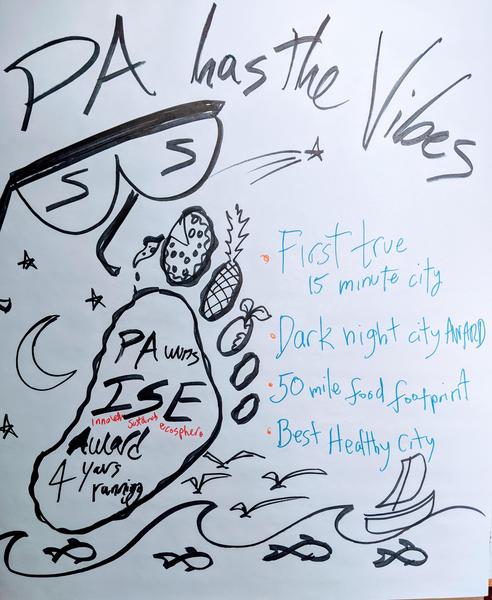 PA has the Vibes
S S
First true
15 minute city
Dark night city AWARD
50 mile food footprint
Best Healthy City
PA wins
ISE
ecosphere
Award
4 years
running